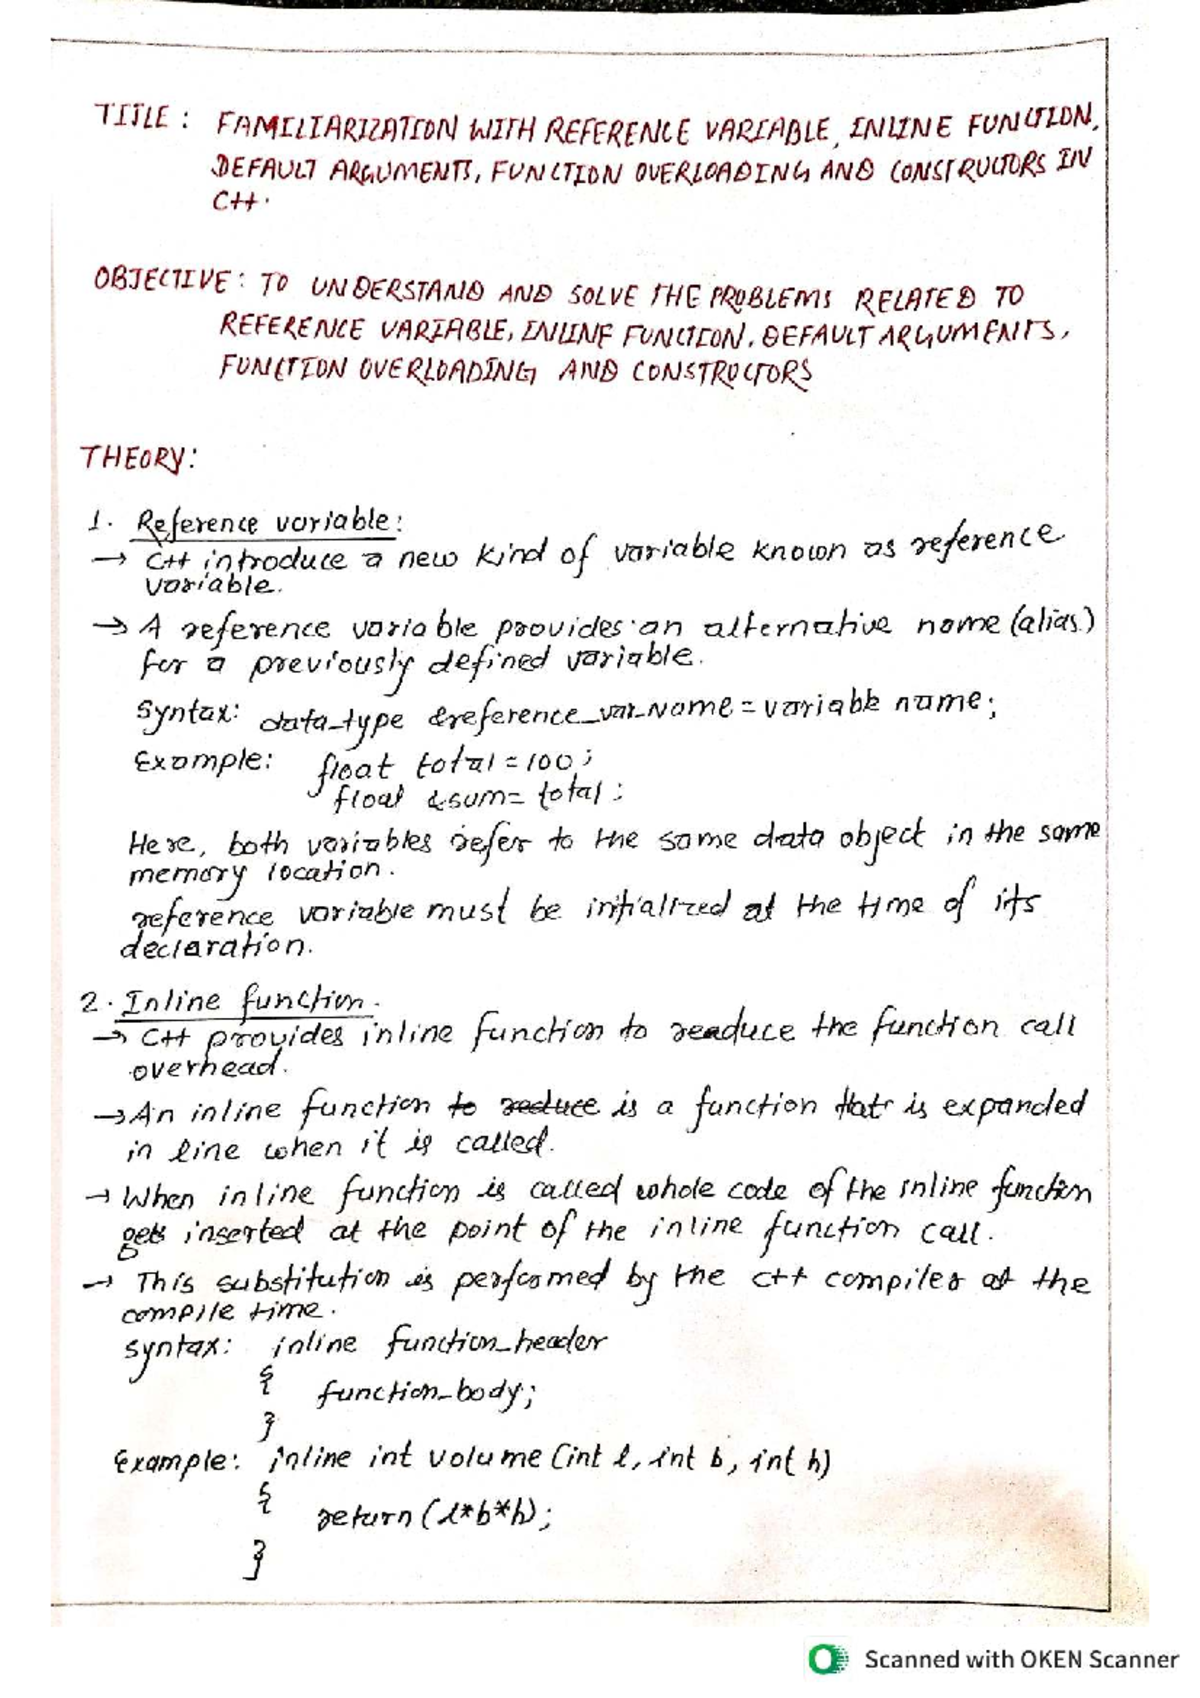 TITLE: FAMILIARIZATION WITH REFERENCE VARIABLE, INLINE FUNCTION,
DEFAULT ARGUMENTS, FUNCTION OVERLOADING AND CONSTRUCTORS IN
C++.
OBJECTIVE: TO UNDERSTAND AND SOLVE THE PROBLEMS RELATED TO
REFERENCE VARIABLE, INLINE FUNCTION, DEFAULT ARGUMENTS,
FUNCTION OVERLOADING AND CONSTRUCTORS
THEORY:
1. Reference variable:
→ C++ introduce a new kind of variable known as reference
variable.
→ A reference variable provides an alternative name (alias)
for a previously defined variable.
Syntax: data_type &reference_var_Name = variable name;
Example: float total = 100;
float &sum = total;
Here, both variables refer to the same data object in the same
memory location.
reference variable must be initialized at the time of its
declaration.
2. Inline function.
→ C++ provides inline function to readuce the function call
overhead.
→ An inline function to reduce is a function that is expanded
in line when it is called.
→ When inline function is called whole code of the inline function
gets inserted at the point of the inline function call.
→ This substitution is performed by the C++ compiler at the
compile time.
syntax: inline function_header
{
function_body;
}
Example: inline int volume (int l, int b, int h)
{
return (l*b*h);
}
Scanned with OKEN Scanner